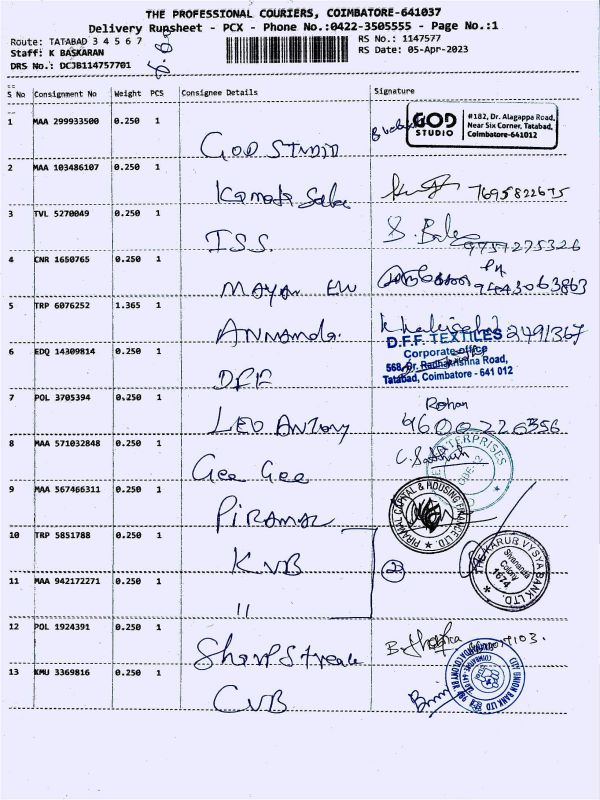 THE PROFESSIONAL COURIERS, COIMBATORE-641037
Delivery Runsheet - PCX - Phone No.:0422-3505555 - Page No.:1
Route: TATABAD 3 4 5 6 7
RS No.: 1147577
Staff: K BASKARAN
RS Date: 05-Apr-2023
DRS No.: DCJB114757701
S No Consignment No Weight PCS Consignee Details Signature
1 MAA 299933500 0.250 1 GOD STUDIO
GOD STUDIO
#182, Dr. Alagappa Road,
Near Six Corner, Tatabad,
Coimbatore-641012
2 MAA 103486107 0.250 1 7695822675
3 TVL 5270049 0.250 1 ISS. 9751275326
4 CNR 1650765 0.250 1 MAYAN
5 TRP 6076252 1.365 1
6 EDQ 14309814 0.250 1 DFF
D.F.F. TEXTILES
Corporate office
568, Dr. Radhakrishna Road,
Tatabad, Coimbatore - 641 012
7 POL 3705394 0.250 1 LEO ANTONY Rohan
9600220356
8 MAA 571032848 0.250 1 Gee Gee C. Sathish
ENTERPRISES
9 MAA 567466311 0.250 1 PIRAMAL
PIRAMAL CAPITAL & HOUSING FINANCE LTD.
10 TRP 5851788 0.250 1 KVB
THE KARUR VYSYA BANK LTD.
Sivananda
Colony
1674
11 MAA 942172271 0.250 1 "
2
12 POL 1924391 0.250 1
13 KMU 3369816 0.250 1 CUB
CITY UNION BANK LTD